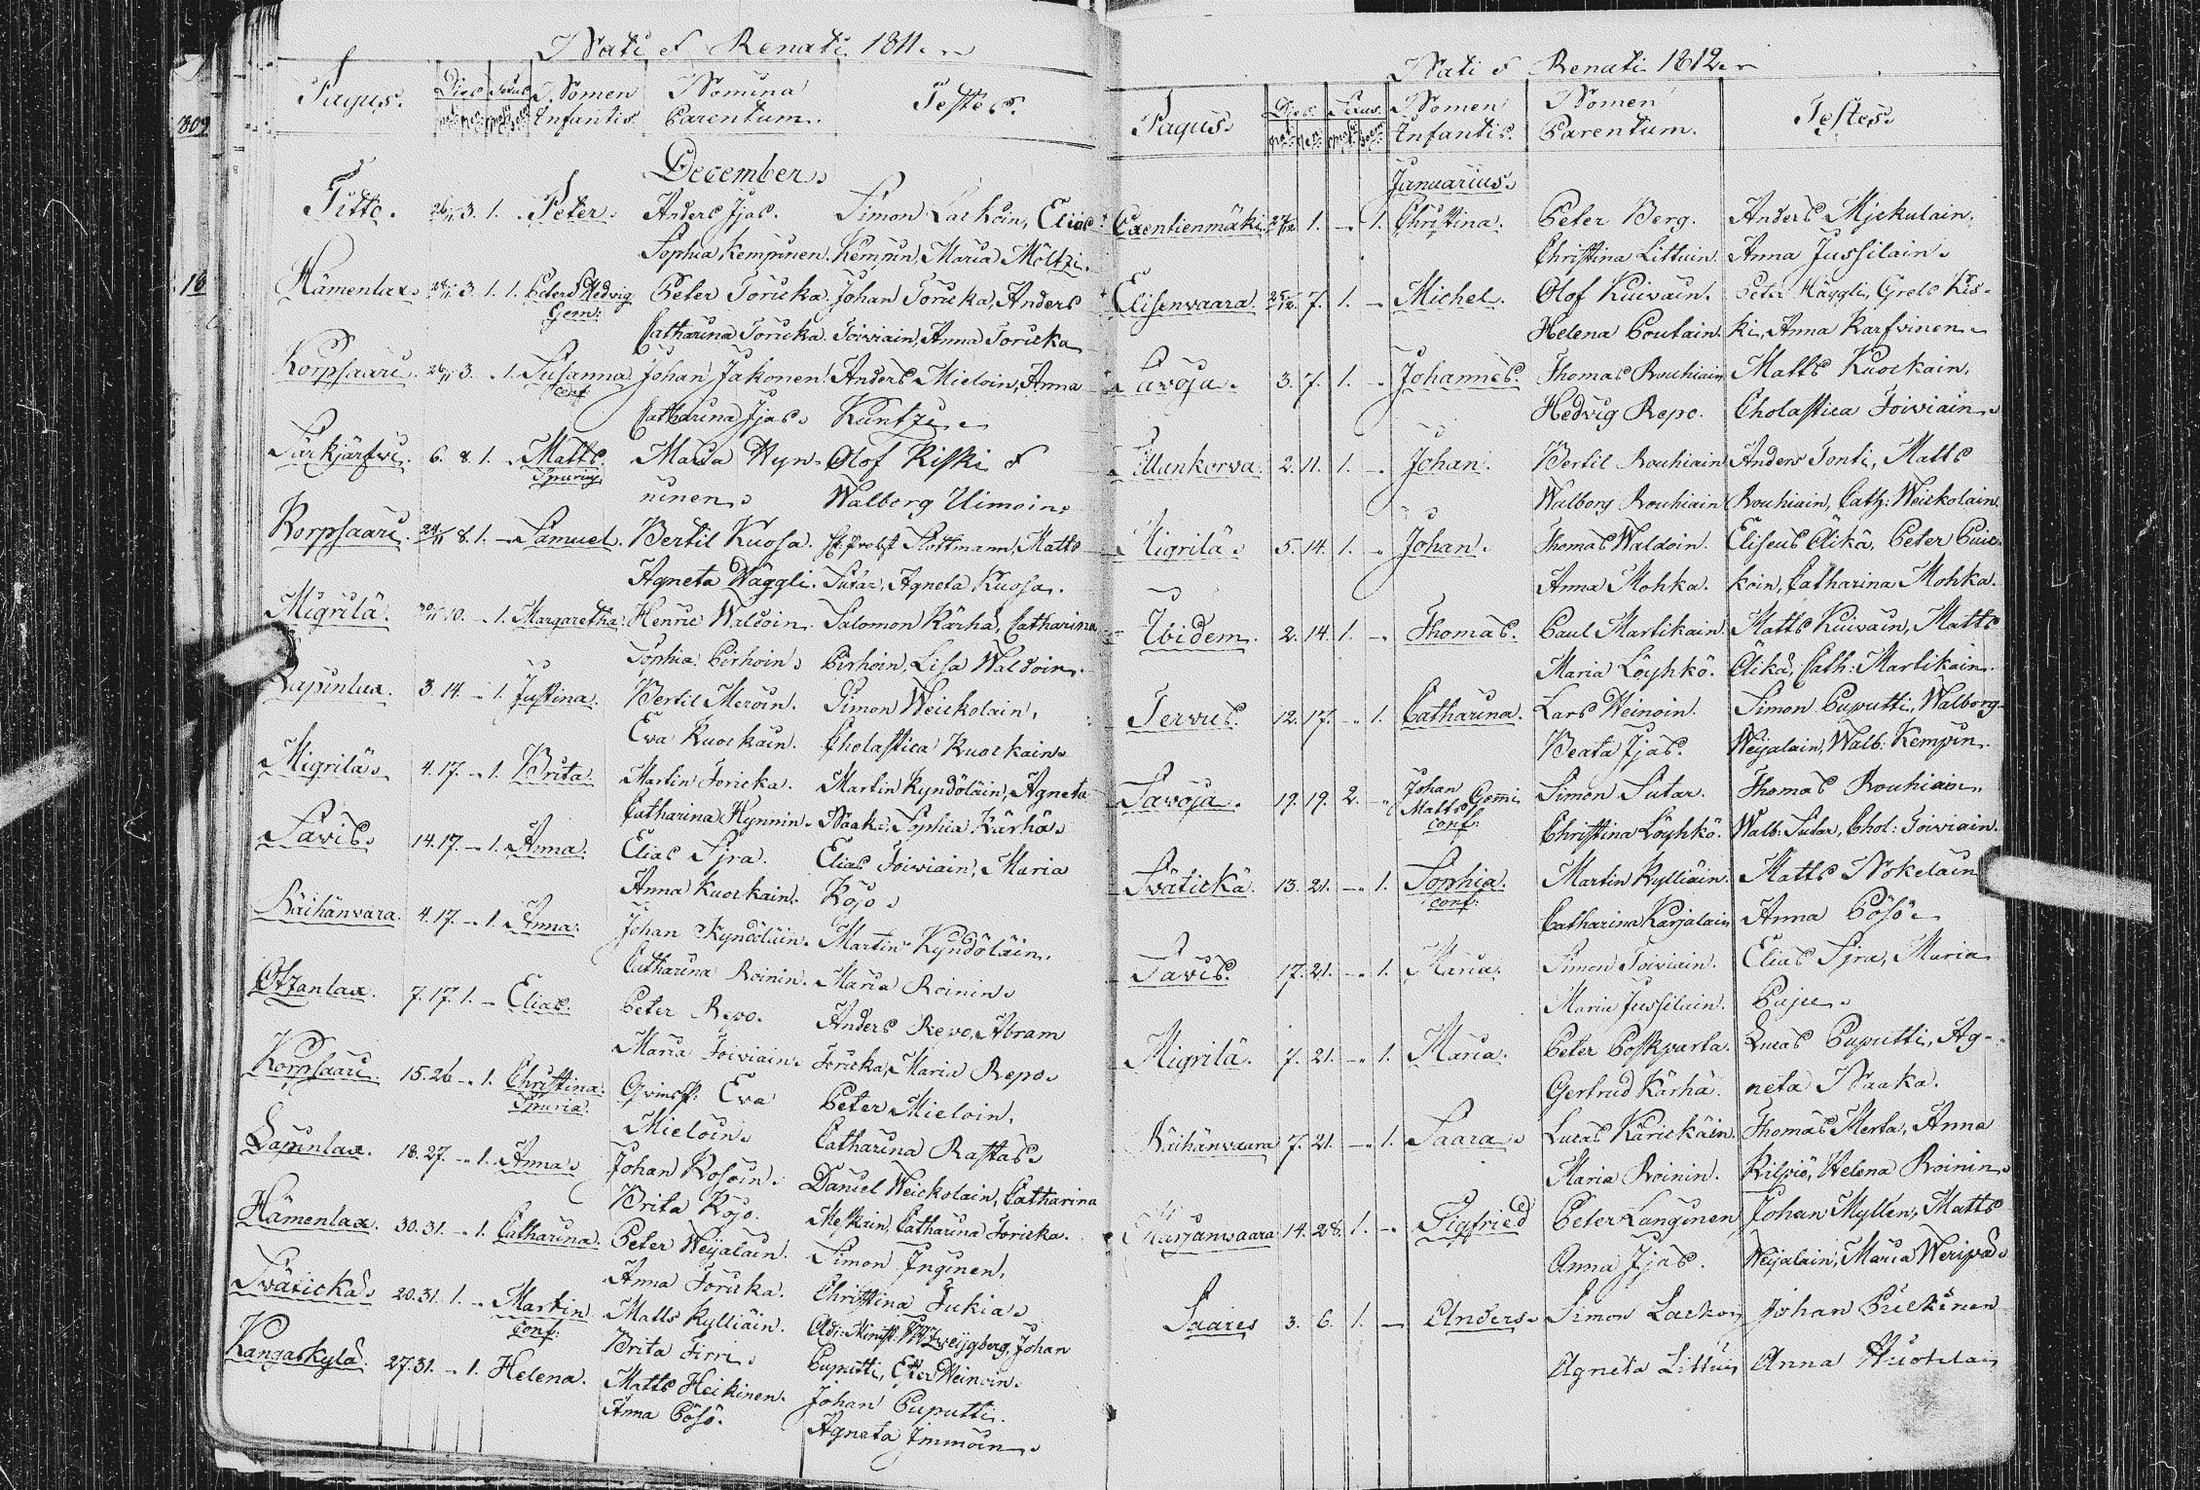 Nati & Renati 1811.
Pagus. Dies Sexus Nomen Infantis Nomina Parentum. Testes.
December.
Titto. 26/11 3. 1. Peter. Anders Ijas. Simon Larkoin, Elias
Sophia Kempinen. Kempin, Maria Möltzi.
Hämenlax. 3. 1. 1. Peter & Hedvig Gem: Peter Toricka. Johan Toricka, Anders
Catharina Toricka. Toiviain, Anna Toricka
Korpsaari. 26/11 3. 1. Susanna conf Johan Jakonen. Anders Mieloin, Anna
Catharina Ijas. Kuntzi.
Särkjärfwi. 6. 8. 1. Matts. Spurius Maria Hyn- Olof Kiski &
ninen. Walborg Uimoin.
Korpsaari. 24/11 8. 1. Samuel. Bertil Kuosa. Probst Slottmann, Matts
Agneta Häggli. Sutar, Agneta Kuosa.
Migrilä. 30/11 10. 1. Margaretha. Henric Waldoin. Salomon Kärhä, Catharina
Sophia Pirhoin. Pirhoin, Lisa Waldoin.
Lapinlax. 3. 14. 1. Justina. Bertil Meroin. Simon Weickolain,
Eva Kuockain. Cholastica Kuockain.
Migrilä. 4. 17. 1. Brita. Martin Toricka. Martin Kyndöläin, Agneta
Catharina Hynnin. Naaka, Sophia Kärhä.
Savis. 14. 17. 1. Anna. Elias Sjra. Elias Toiviain, Maria
Anna Kuockain. Kojo.
Räihänvara. 4. 17. 1. Anna. Johan Kyndöläin. Martin Kyndöläin,
Catharina Roinin. Maria Roinin.
Otzanlax. 7. 17. 1. Elias. Peter Repo. Anders Repo, Abram
Maria Toiviain. Toricka, Maria Repo.
Korpsaari. 15. 26. 1. Christina. Spuria. Eva Peter Mieloin,
Mieloin. Catharina Rastas.
Lapinlax. 18. 27. 1. Anna. Johan Kosoin. Daniel Weickolain, Catharina
Brita Kojo. Meskain, Catharina Toricka.
Hämenlax. 30. 31. 1. Catharina. Peter Weijalain. Simon Inginen,
Anna Toricka. Christina Tukia.
Svätickä. 20. 31. 1. Martin conf: Matts Kylliäin. Adj: Minist: Zweygberg, Johan
Brita Tirri. Puputti, Ester Weinoin.
Kangaskylä. 27. 31. 1. Helena. Matts Heikinen. Johan Puputti.
Anna Pösö. Agneta Immoin.
Nati & Renati 1812.
Pagus. Dies. Sexus. Nomen Infantis. Nomen Parentum. Testes.
Januarius.
27/12 1. 1. Christina. Peter Berg. Anders Mjekulain,
Christina Littuin. Anna Jussilain.
Elisenvaara. 25/12 7. 1. Michel. Olof Kuivain. Peter Häggli, Grels Kis-
Helena Poutain. ki, Anna Karfvinen.
Savoja. 3. 7. 1. Johannes. Thomas Rouhiain Matts Kuockain,
Hedvig Repo. Cholastica Toiviain.
Tillunkorva. 2. 11. 1. Johan. Bertil Rouhiain Anders Tonti, Matts
Walborg Rouhiain Rouhiain, Cath: Weickolain.
Migrilä. 5. 14. 1. Johan. Thomas Waldoin. Eliseus Älikä, Peter Puic-
Anna Mohka. koin, Catharina Mohka.
Ibidem. 2. 14. 1. Thomas. Paul Martikain. Matts Kuivain, Matts
Maria Löyhkö. Älikä, Cath: Martikain.
Tervus. 12. 17. 1. Catharina. Lars Weinoin. Simon Puputti, Walborg
Beata Ijas. Weijalain, Walb: Kempin.
Savoja. 19. 19. 2. Johan Matts Gem: conf: Simon Sutar. Thomas Rouhiain,
Christina Löyhkö. Walb: Sutar, Chol: Toiviain.
Svätickä. 13. 21. 1. Sophia. conf: Martin Kylliäin. Matts Nokelain
Catharina Karjalain Anna Pösö.
Savis. 17. 21. 1. Maria. Simon Toiviain. Elias Sjra, Maria
Maria Jussilain. Paju.
Migrilä. 7. 21. 1. Maria. Peter Poskparta. Lucas Puputti, Ag-
Gertrud Kärhä. neta Naaka.
Räihänvaara 7. 21. 1. Saara. Lucas Kärickäin. Thomas Merta, Anna
Maria Roinin. Kilpiö, Helena Roinin.
Harjanvaara 14. 28. 1. Sigfried Peter Langinen Johan Myllen, Matts
Anna Ijas. Weijalain, Maria Weripää.
Saares 3. 6. 1. Anders. Simon Lackon Johan Pulkinen
Agneta Littuin Anna Huohelain